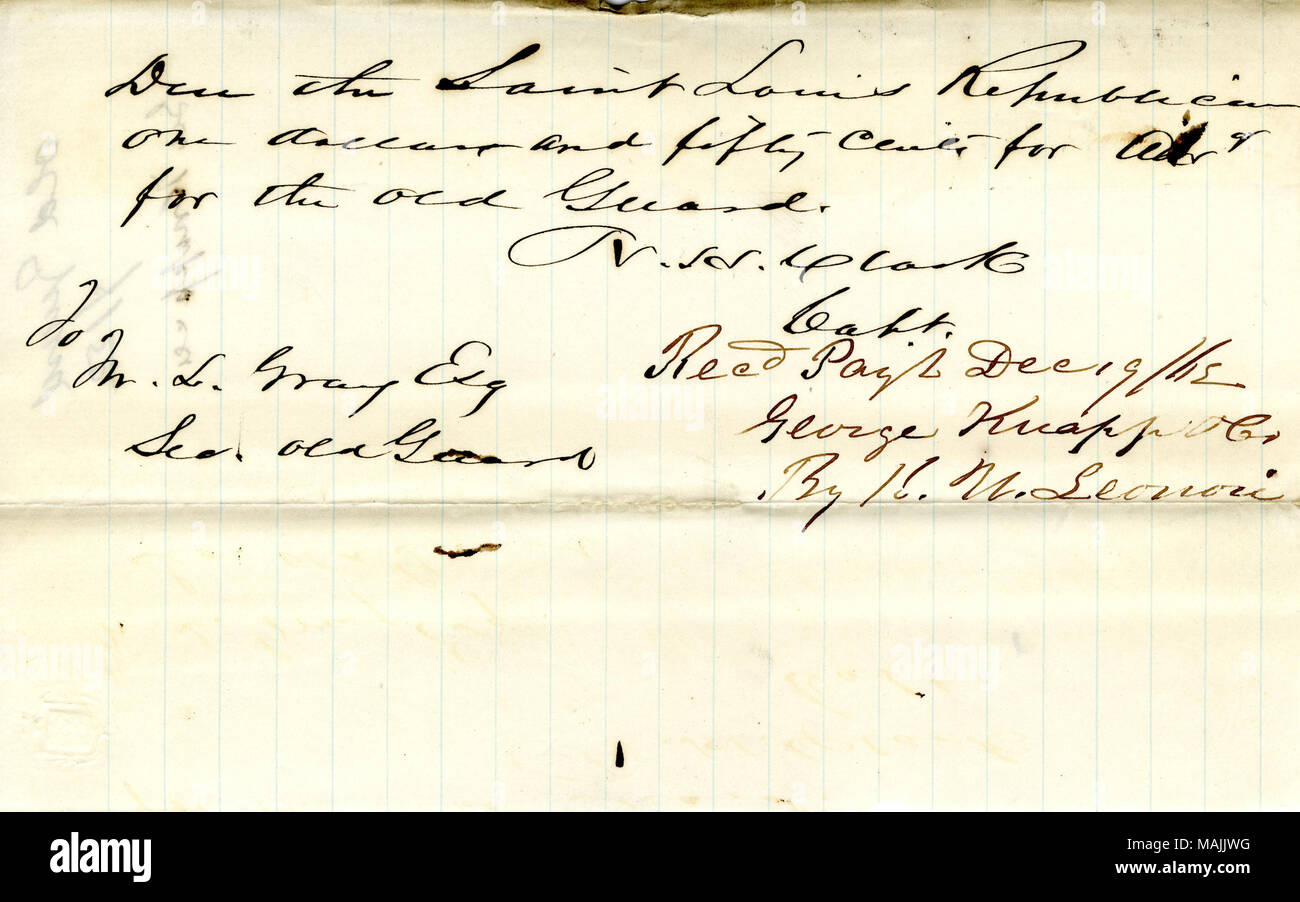 Due the Saint Louis Republican
one dollar and fifty cents for Advg
for the old Guard.
N. H. Clark
Capt.
To
M. L. Gray Esq
Sec. Old Guard
Recd Payt Dec 19/62
George Knapp & Co.
By R. M. Leonori
alamy
Image ID: MAJJWG
www.alamy.com